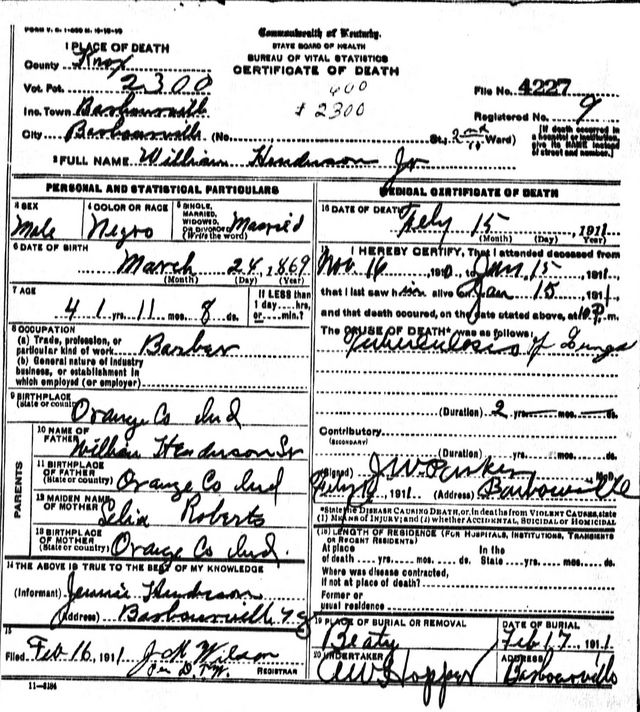 FORM V. S. 1-
Commonwealth of Kentucky.
STATE BOARD OF HEALTH
BUREAU OF VITAL STATISTICS
CERTIFICATE OF DEATH
1 PLACE OF DEATH
County Knox
Vot. Pct. 2300
400
$ 2300
File No. 4227
Inc. Town Barbourville
Registered No. 9
City Barbourville (No. St.; 2nd Ward)
[If death occurred in a hospital or institution, give its NAME instead of street and number.]
2 FULL NAME William Henderson Jr
PERSONAL AND STATISTICAL PARTICULARS
3 SEX
Male
4 COLOR OR RACE
Negro
5 SINGLE, MARRIED, WIDOWED OR DIVORCED (Write the word) Married
6 DATE OF BIRTH
March 24, 1869
(Month) (Day) (Year)
7 AGE
41 yrs. 11 mos. 8 ds.
If LESS than 1 day....hrs. or....min.?
8 OCCUPATION
(a) Trade, profession, or particular kind of work Barber
(b) General nature of industry
business, or establishment in
which employed (or employer)
9 BIRTHPLACE
(State or country) Orange Co Ind
PARENTS
10 NAME OF FATHER William Henderson Sr
11 BIRTHPLACE OF FATHER (State or country) Orange Co Ind
12 MAIDEN NAME OF MOTHER Celia Roberts
13 BIRTHPLACE OF MOTHER (State or country) Orange Co Ind.
14 THE ABOVE IS TRUE TO THE BEST OF MY KNOWLEDGE
(Informant) Jennie Henderson
(Address) Barbourville Ky
15
Filed Feb 16, 1911 J M Wilson
REGISTRAR
11-5184
MEDICAL CERTIFICATE OF DEATH
16 DATE OF DEATH Feby 15, 1911
(Month) (Day) (Year)
17 I HEREBY CERTIFY, That I attended deceased from
Nov. 16 1910 Jan 15, 1911,
that I last saw him alive on Jan 15, 1911,
and that death occured, on the date stated above, at 10 P. m.
The CAUSE OF DEATH* was as follows:
Tuberculosis of Lungs
(Duration) 2 yrs. mos. ds.
Contributory
(SECONDARY)
(Duration) yrs. mos. ds.
(Signed) J. W. Parker M.D.
1911 (Address) Barbourville
*State the DISEASE CAUSING DEATH, or, in deaths from VIOLENT CAUSES, state
(1) MEANS OF INJURY; and (2) whether ACCIDENTAL, SUICIDAL or HOMICIDAL
(18) LENGTH OF RESIDENCE (FOR HOSPITALS, INSTITUTIONS, TRANSIENTS
OR RECENT RESIDENTS)
At place of death yrs. mos. ds. In the State yrs. mos. ds.
Where was disease contracted,
if not at place of death?
Former or
usual residence
19 PLACE OF BURIAL OR REMOVAL
Beaty
DATE OF BURIAL
Feb 17, 1911
20 UNDERTAKER
Hopper
ADDRESS
Barbourville